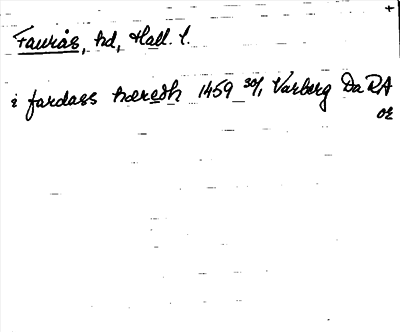 +
Faurås, hd, Hall. l.
i fardass hæredh 1459 30/1 Varberg Da RA
or